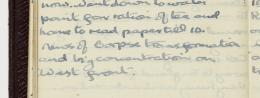 now. Went down to water
point for ration of tea and
home to read paper till 10.
News of Corps transformation
and big concentration on
West front.